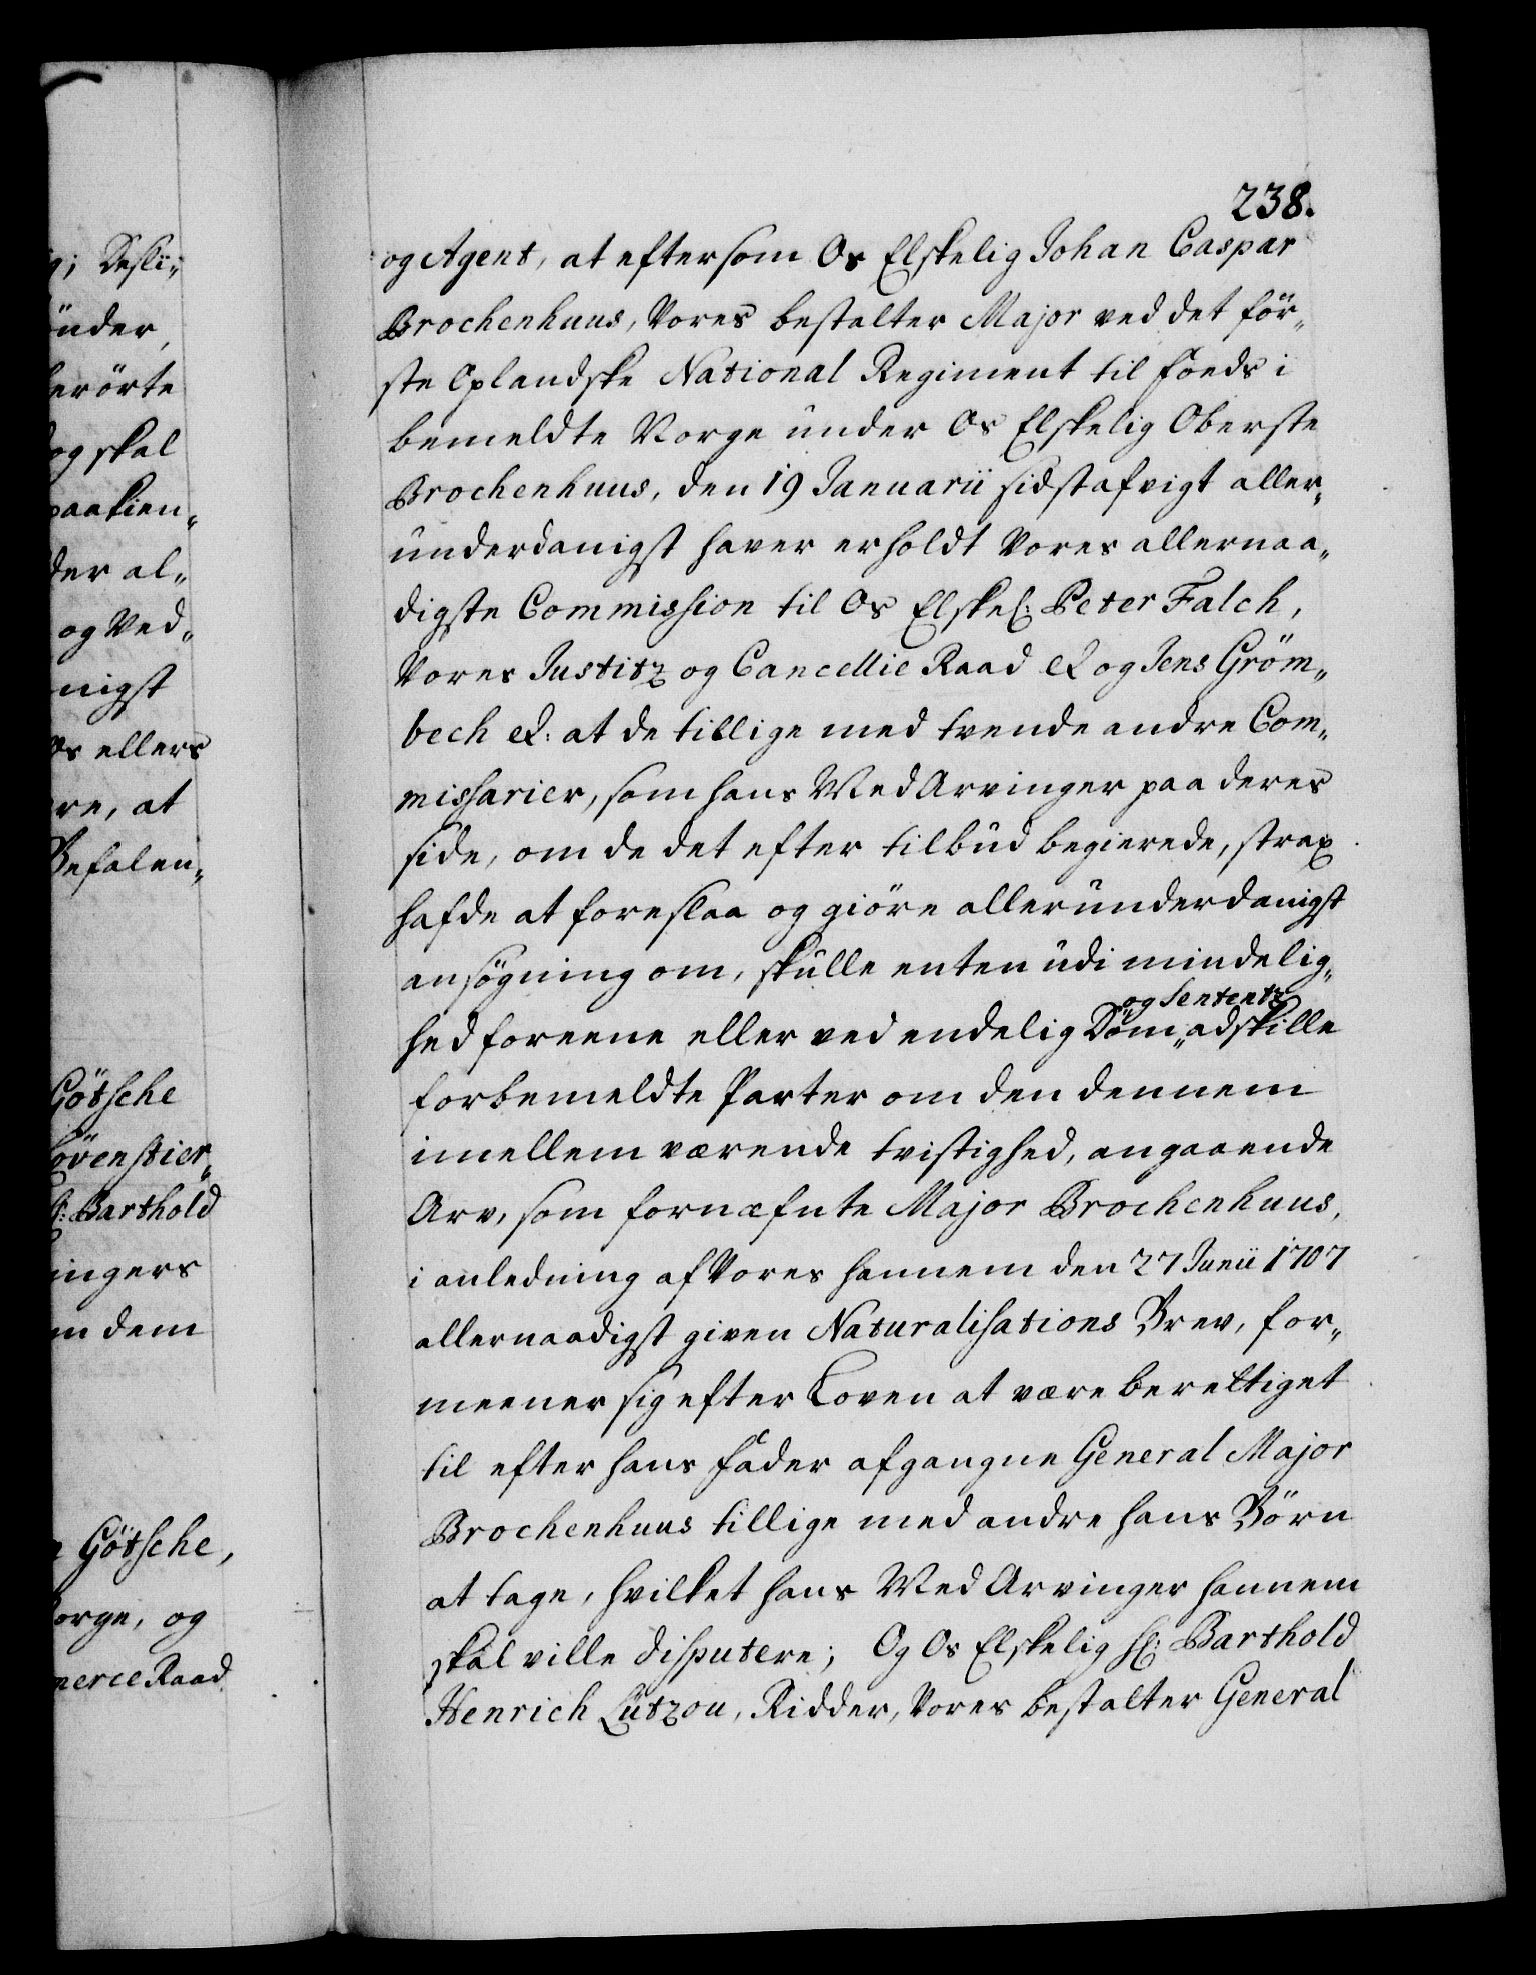 238.
og Agent, at eftersom Os Elskelig Johan Caspar
Brochenhuus, Vores bestalter Major ved det för„
ste Oplandske National Regiment til Foeds i
bemeldte Norge under Os Elskelig Oberste
Brochenhuus, den 19 Januarii sidstafvigt aller„
underdanigst haver erholdt Vores allernaa„
digste Commission til Os Elskel: Peter Falch,
Vores Justitz og Cancellie Raad &c og Jens Gröm„
bech &c: at de tillige med tvende andre Com„
missarier, som hans Med Arvinger paa deres
side, om de det efter tilbud begierede, strax
hafde at foreslaa og giöre allerunderdanigst
ansögning om, skulle enten udi mindelig„
og Sententz
hed foreene eller ved endelig Dom„ adskille
forbemeldte Parter om den dennem
imellem værende tvistighed, angaaende
Arv, som fornæfnte Major Brochenhuus,
i anledning af Vores hannem den 27 Junii 1707
allernaadigst given Naturalisations Brev, for„
meener sig efter Loven at være berettiget
til efter hans Fader afgangne General Major
Brochenhuus tillige med andre hans Börn
at tage, hvilket hans Med Arvinger hannem
skal ville disputere; Og Os Elskelig Hl: Barthold
Henrich Lützou, Ridder, Vores bestalter General
under,
berörte
og skal
paakien„
der al„
og Ved„
nigst
Os ellers
re, at
Befalen„
Götsche
Lövenstier„
Hl: Barthold
ingers
m dem
Götsche,
Norge, og
merce Raad